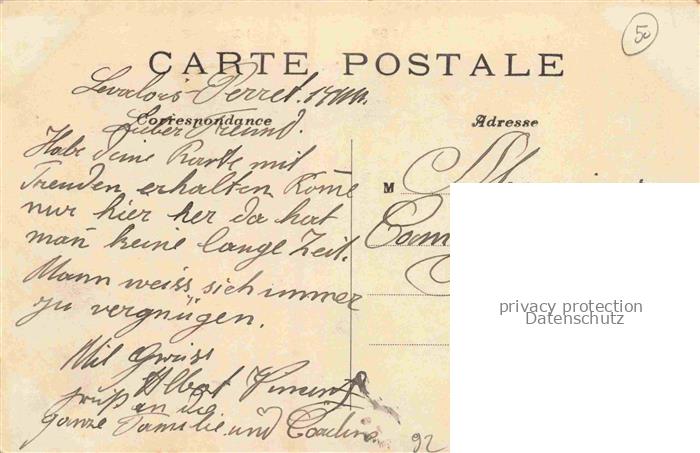 50
CARTE POSTALE
Levalois-Perret.
Correspondance
Adresse
Lieber Freund.
Habe deine Karte mit
Freuden erhalten Kom̄e
nur hier her da hat
man̄ keine lange Zeit.
Mann weiss sich immer
zu vergnügen.
Mit Gruss
Albert
gruß an die
ganze Familie und
M
92
privacy protection
Datenschutz